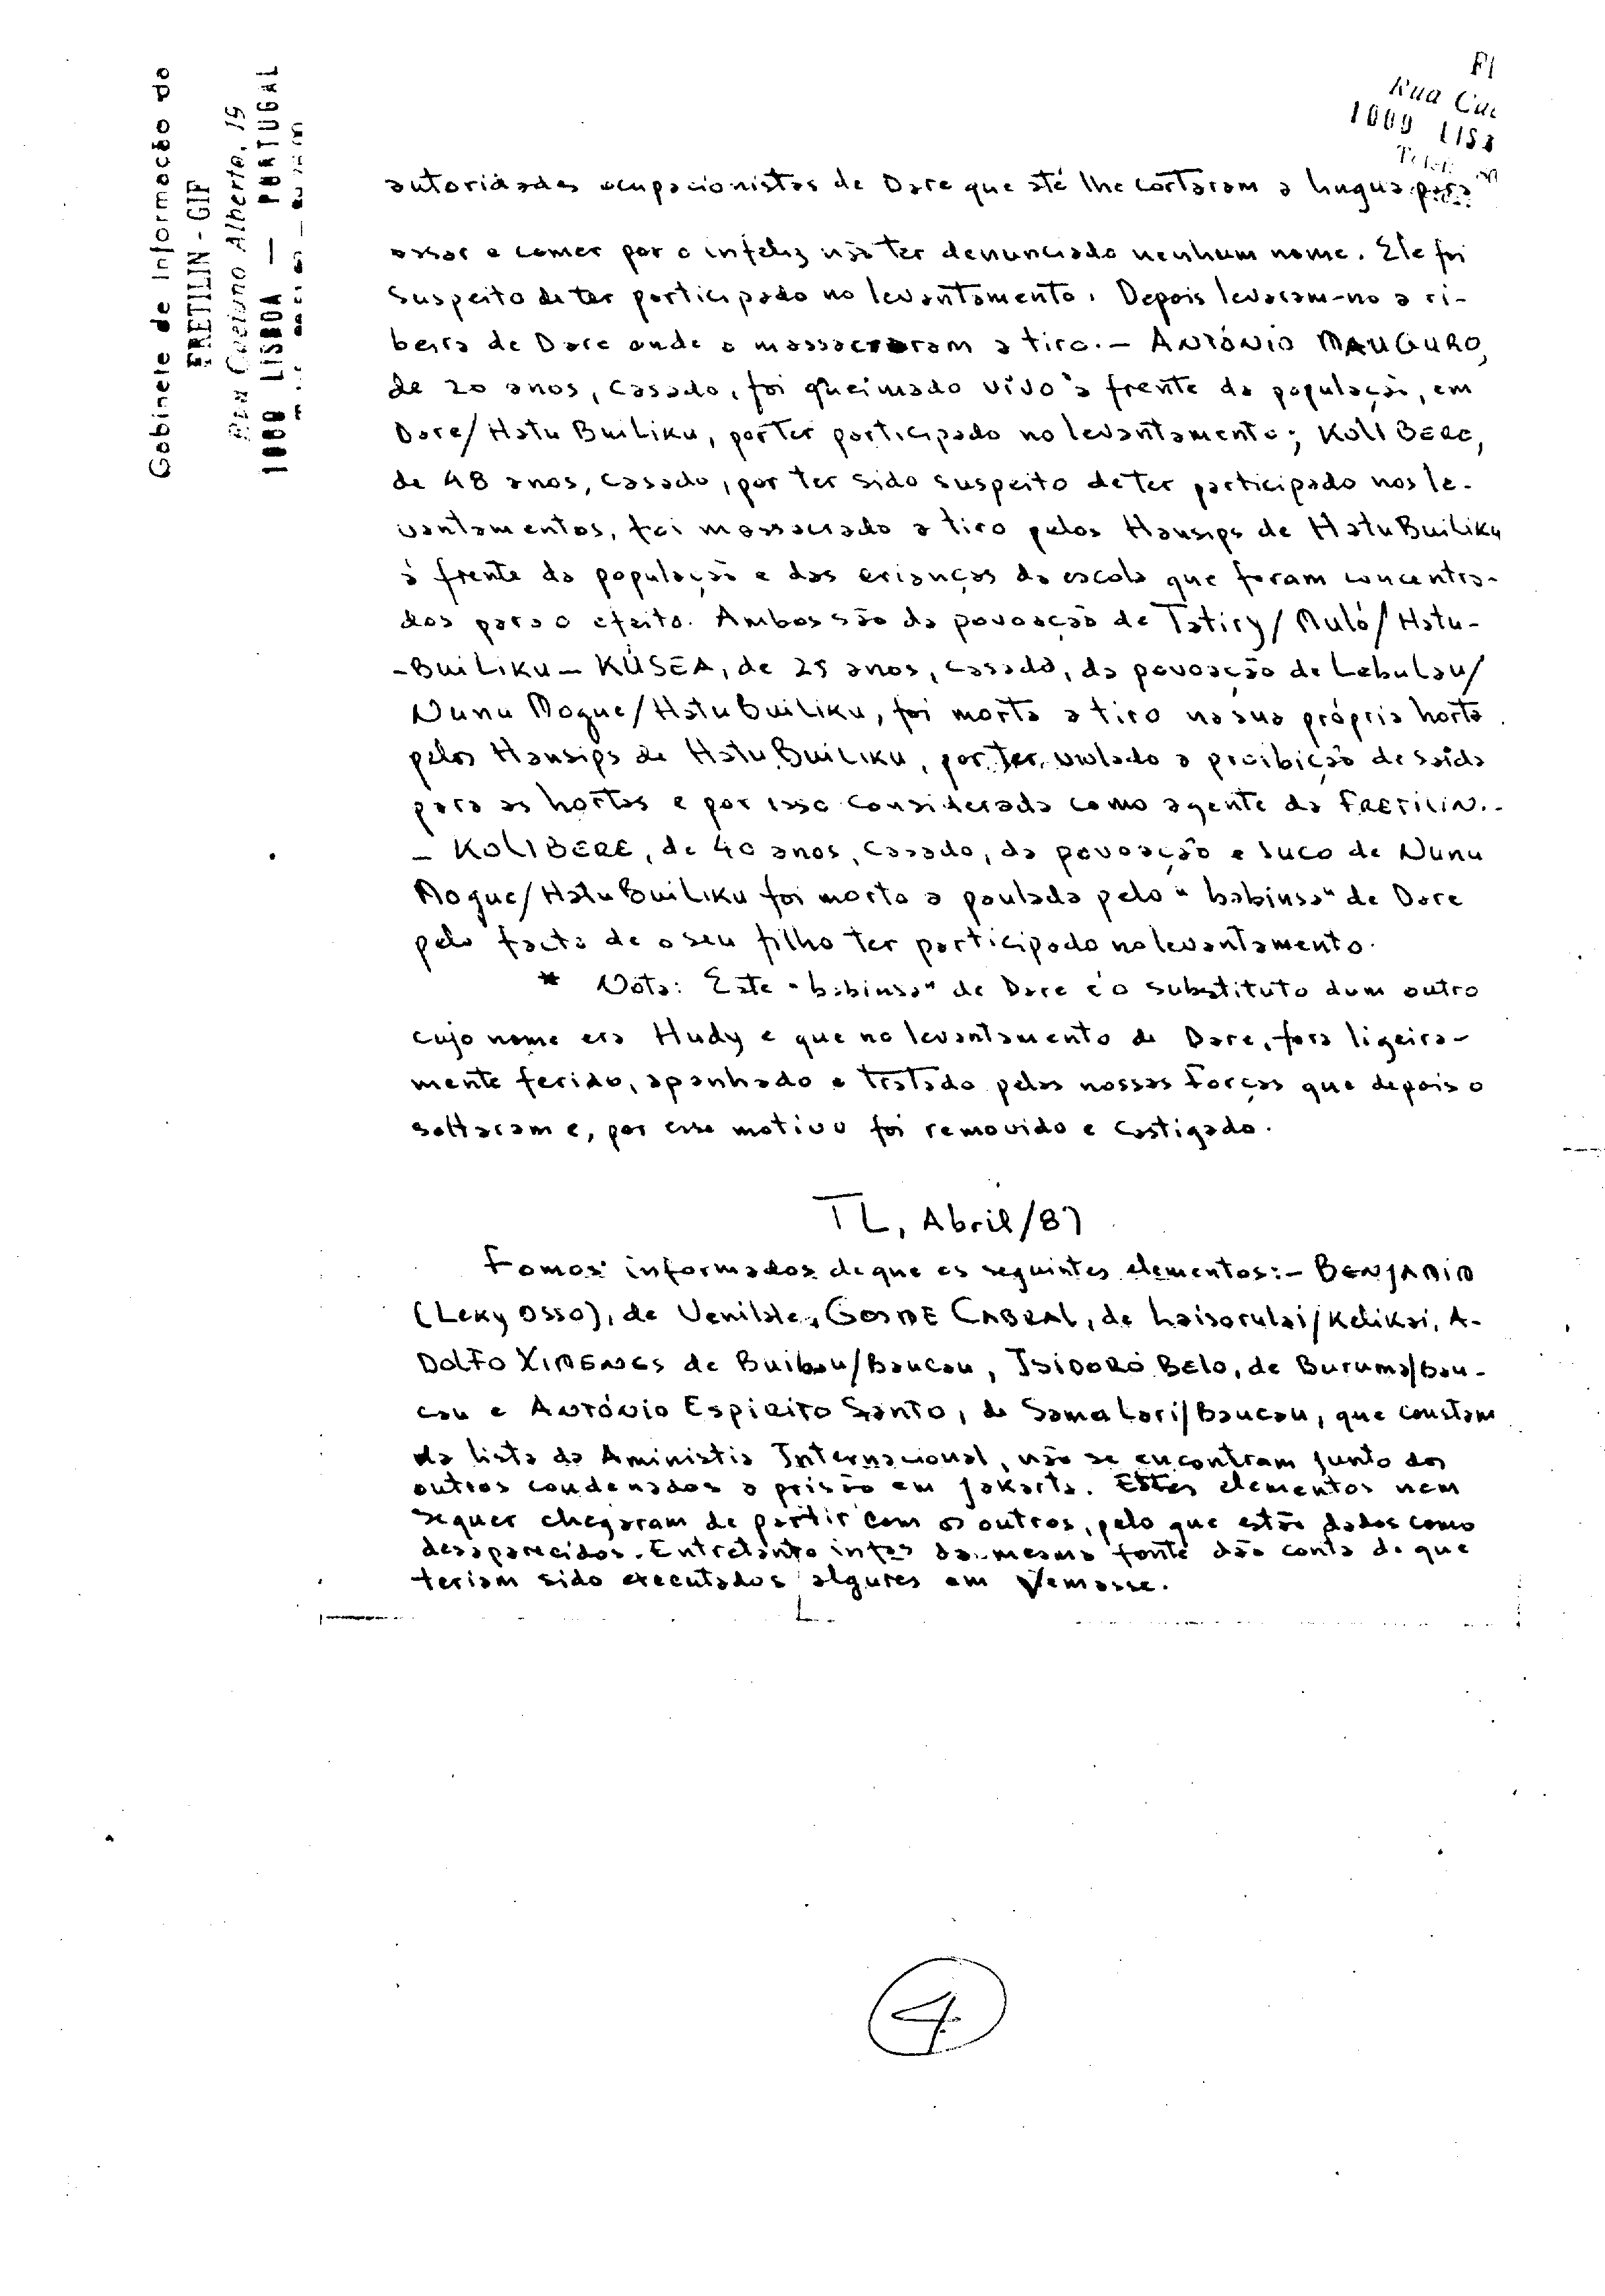 Gabinete de Informação do
FRETILIN - GIF
Rua Caetano Alberto, 19
1000 LISBOA — PORTUGAL
Rua
1000 LIS
autoridades ocupacionistas de Dare que até lhe cortaram a lingua para
assar e comer por o infeliz não ter denunciado nenhum nome. Ele foi
suspeito de ter participado no levantamento. Depois levaram-no a ri-
beira de Dare onde o massacraram a tiro. — ANTÓNIO MAUGURO,
de 20 anos, casado, foi queimado vivo à frente da população, em
Dare/Hatu Builiku, por ter participado no levantamento; KOLI BERE,
de 48 anos, casado, por ter sido suspeito de ter participado nos le-
vantamentos, foi massacrado a tiro pelos Hansips de HatuBuiliku
à frente da população e das crianças da escola que foram concentra-
dos para o efeito. Ambos são da povoação de Tatiry/Mulo/Hatu-
-Builiku — KÚSEA, de 25 anos, casado, da povoação de Lebulau/
Nunu Mogue/HatuBuiliku, foi morto a tiro na sua própria horta
pelos Hansips de HatuBuiliku, por ter violado a proibição de saída
para as hortas e por isso considerado como agente da FRETILIN. -
— KOLIBERE, de 40 anos, casado, da povoação e suco de Nunu
Mogue/HatuBuiliku foi morto a paulada pelo "babinsa" de Dare
pelo facto de o seu filho ter participado no levantamento.
* Nota: Este "babinsa" de Dare é o substituto dum outro
cujo nome era Hudy e que no levantamento de Dare, fora ligeira-
mente ferido, apanhado e tratado pelas nossas forças que depois o
soltaram e, por esse motivo foi removido e castigado.
TL, Abril/87
Fomos informados de que os seguintes elementos: — BENJAMIM
(Leky Osso), de Venilale, GOSME CABRAL, de Laisorulai/Kelikai, A-
DOLFO XIMENES de Buibau/Baucau, ISIDORO BELO, de Buruma/Bau-
cau e António Espirito Santo, de Samalari/Baucau, que constam
da lista da Aministia Internacional, não se encontram junto dos
outros condenados a prisão em Jakarta. Estes elementos nem
sequer chegaram de partir com os outros, pelo que estão dados como
desaparecidos. Entretanto infos da mesma fonte dão conta de que
teriam sido executados algures em Vemasse.
4